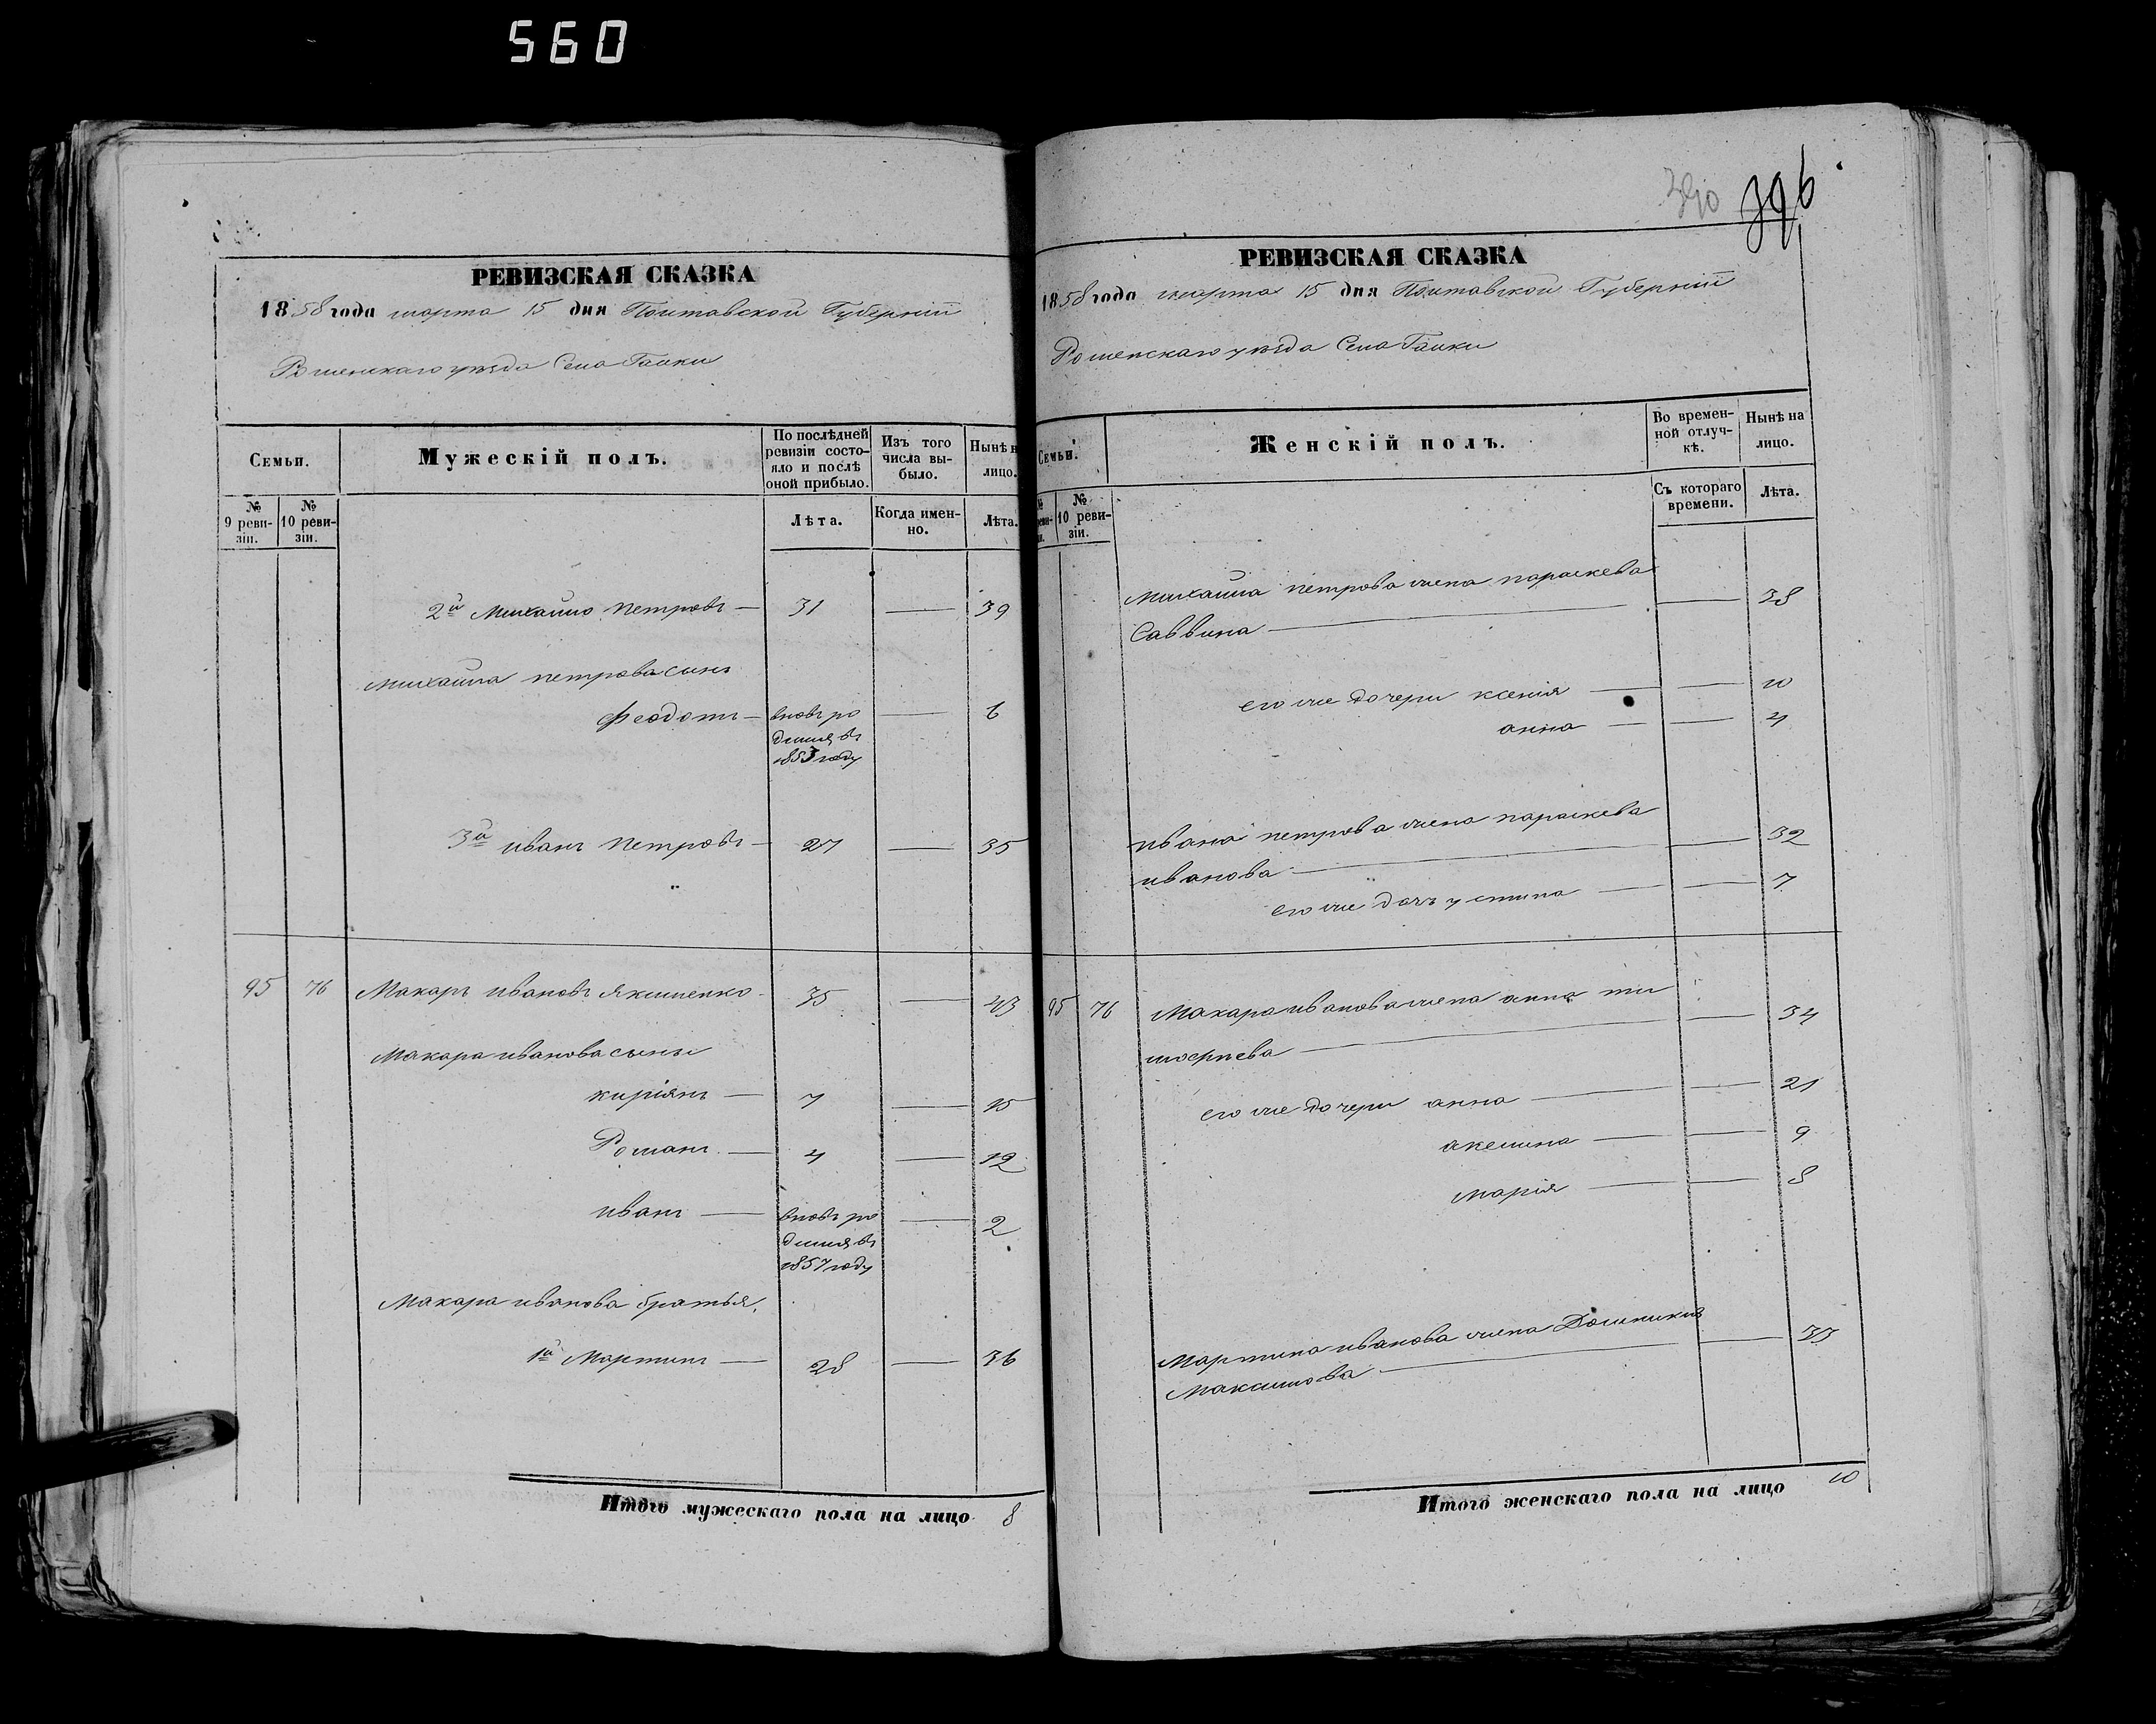 560
390 396
РЕВИЗСКАЯ СКАЗКА
1858 года марта 15 дня Полтавской Губерніи
Роменскаго уѣзда Села Галки
Семьи.
Мужескій полъ.
По послѣдней ревизіи состояло и послѣ оной прибыло.
Изъ того числа выбыло.
Нынѣ н лицо.
№ 9 ревизіи.
№ 10 ревизіи.
Лѣта.
Когда именно.
Лѣта.
2й Михайло Петровъ — 31 — 39
Михайла петрова сынъ
Феодотъ — вновь ро — 6
дился въ
1853 году
3й иванъ Петровъ — 27 — 35
95 76 Макаръ ивановъ Якименко — 35 — 43
Макара иванова сыны
киріянъ — 7 — 15
Романъ — 4 — 12
иванъ — вновь ро — 2
дился въ
1857 году
Макара иванова братья,
1й Мартинъ — 28 — 36
Итого мужескаго пола на лицо 8
РЕВИЗСКАЯ СКАЗКА
1858 года марта 15 дня Полтавской Губерніи
Роменскаго уѣзда Села Галки
Семьи.
Женскій полъ.
Во временной отлучкѣ.
Нынѣ на лицо.
№ 10 ревизіи.
Съ котораго времени.
Лѣта.
Михайла петрова жена параскева
Саввина — — 38
его же дочери ксенія — — 10
анна — — 4
ивана петрова жена параскева
иванова — — 32
его же дочь устина — — 7
95 76 Макара иванова жена анна ти
мофеева — — 34
его же дочери анна — — 21
акелина — — 9
марія — — 8
Мартина иванова жена Домникия
Максимова — — 33
Итого женскаго пола на лицо 10